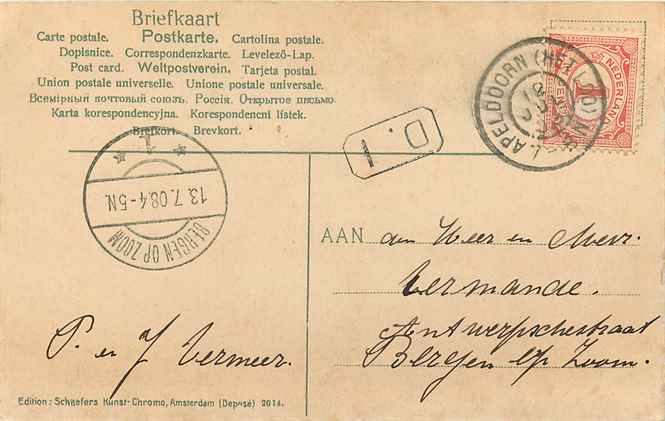 Briefkaart
Carte postale. Postkarte. Cartolina postale.
Dopisnice. Correspondenzkarte. Levelező-Lap.
Post card. Weltpostverein. Tarjeta postal.
Union postale universelle. Unione postale universale.
Всемірный почтовый союзъ. Россія. Открытое письмо.
Karta korespondencyjna. Korespondencni lístek.
Brefkort. Brevkort.
NEDERLAND
1
APELDOORN (HET LOO)
D. 1
1
13.7.08.4-5N.
BERGEN OP ZOOM
AAN den Heer en Mevr.
Vermande.
Antwerpschestraat
Bergen op Zoom.
P. en J Vermeer.
Edition: Schaefers Kunst-Chromo, Amsterdam (Deposé) 2014.